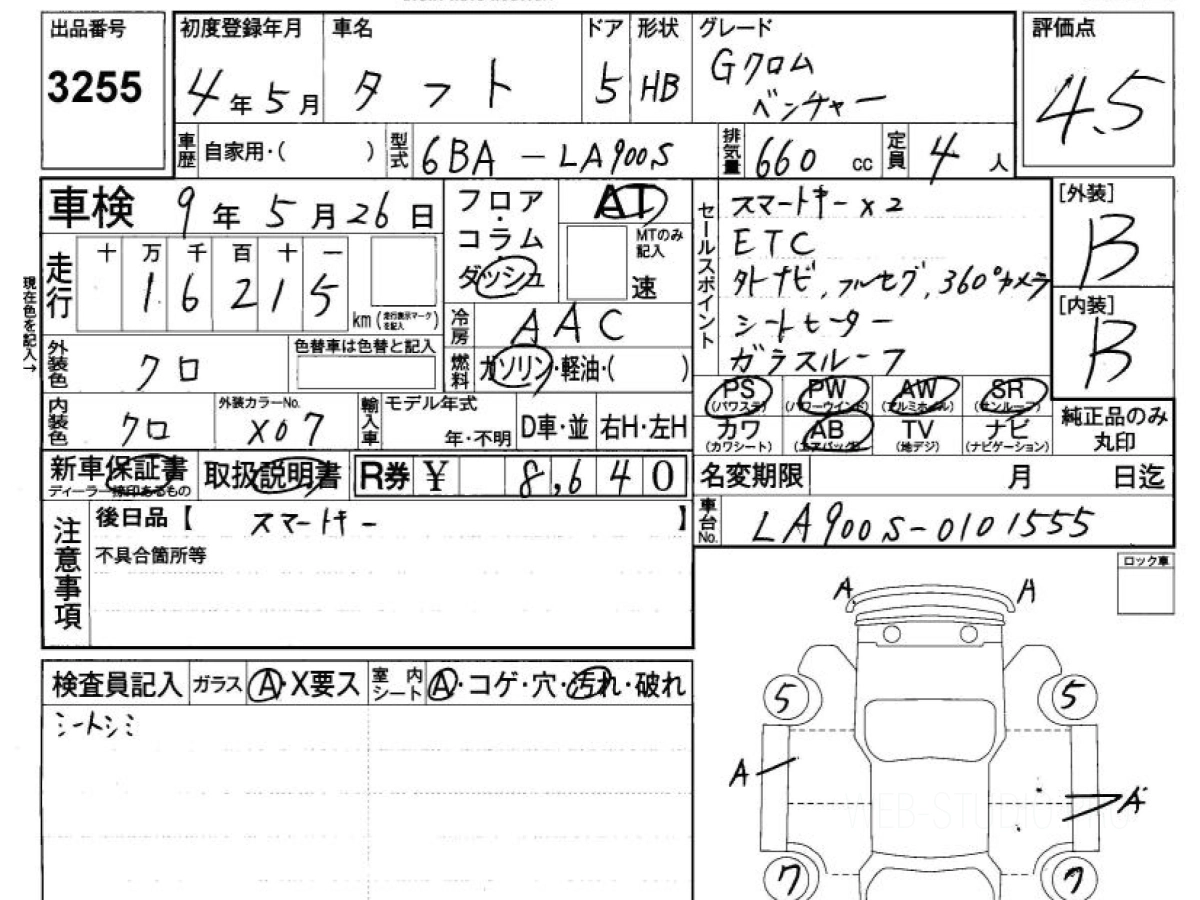 出品番号
3255
初度登録年月
4年5月
車名
タフト
ドア
5
形状
HB
グレード
Gクロム
ベンチャー
評価点
4.5
車歴
自家用・( )
型式
6BA-LA900S
排気量
660 cc
定員
4人
車検
9年5月26日
走行
十 万 千 百 十 一
1 6 2 1 5
km(走行表示マークを記入)
現在色を記入→
外装色
クロ
色替車は色替と記入
内装色
クロ
外装カラーNo.
X07
フロア
・
コラム
・
ダッシュ
AT
MTのみ記入
速
冷房
AAC
燃料
ガソリン・軽油・( )
輸入車
モデル年式
年・不明
D車・並
右H・左H
セールスポイント
スマートキーx2
ETC
外ナビ,フルセグ,360°カメラ
シートヒーター
ガラスルーフ
[外装]
B
[内装]
B
PS
(パワステ)
PW
(パワーウインド)
AW
(アルミホイル)
SR
(サンルーフ)
カワ
(カワシート)
AB
(エアバッグ)
TV
(地デジ)
ナビ
(ナビゲーション)
純正品のみ
丸印
新車保証書
ディーラー捺印あるもの
取扱説明書
R券 ¥ 8,640
名変期限 月 日迄
車台No.
LA900S-0101555
注意事項
後日品【 スマートキー 】
不具合箇所等
ロック車
検査員記入
ガラス
A・X要ス
室内シート
A・コゲ・穴・汚れ・破れ
シートシミ
A
A
5
5
A
A
7
7
WEB-STUDIO